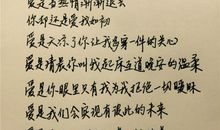 爱是当热情渐渐退去
你却还是爱我如初
爱是天凉了你让我多穿一件的关心
爱是清晨你叫我起床互道晚安的温柔
爱是你眼里只有我为我拒绝一切暧昧
爱是我们会实现有彼此的未来